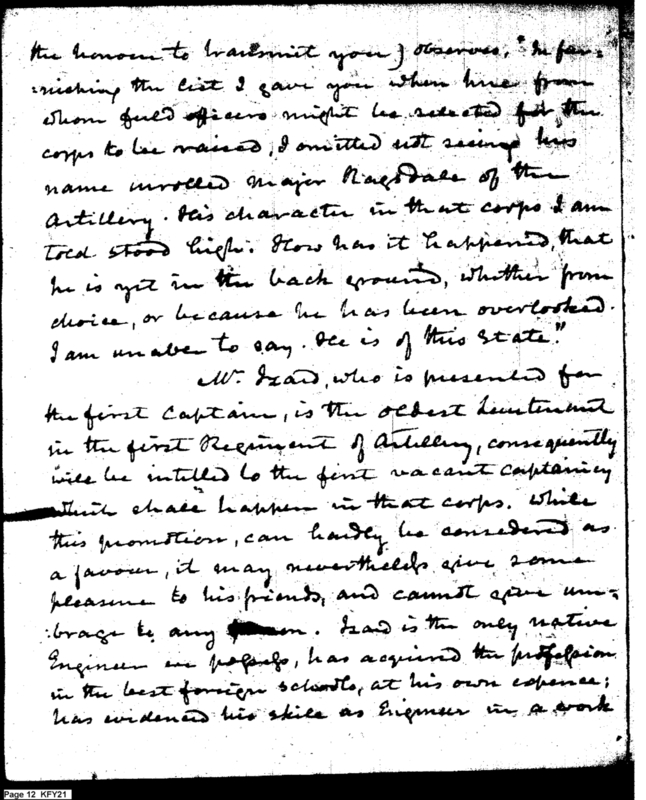 the honour to transmit you) observes, "In fur=
=nishing the list I gave you when here from
whom field officers might be selected for the
corps to be raised, I omitted not seeing his
name inrolled major Ragsdale of the
Artillery. His character in that corps I am
told stood high. How has it happened, that
he is yet in the back ground, whether from
choice, or because he has been overlooked
I am unable to say. He is of this State."
Mr. Izard, who is presented for
the first captain, is the oldest Lieutenant
in the first Regiment of Artillery, consequently
will be intitled to the first vacant captaincy
which shall happen in that corps. While
this promotion, can hardly be considered as
a favour, it may nevertheless give some
pleasure to his friends, and cannot give um=
:brage to any person. Izard is the only native
Engineer we possess, has acquired the profession
in the best foreign schools, at his own expence;
has evidenced his skill as Engineer in a work
Page 12 KFY21